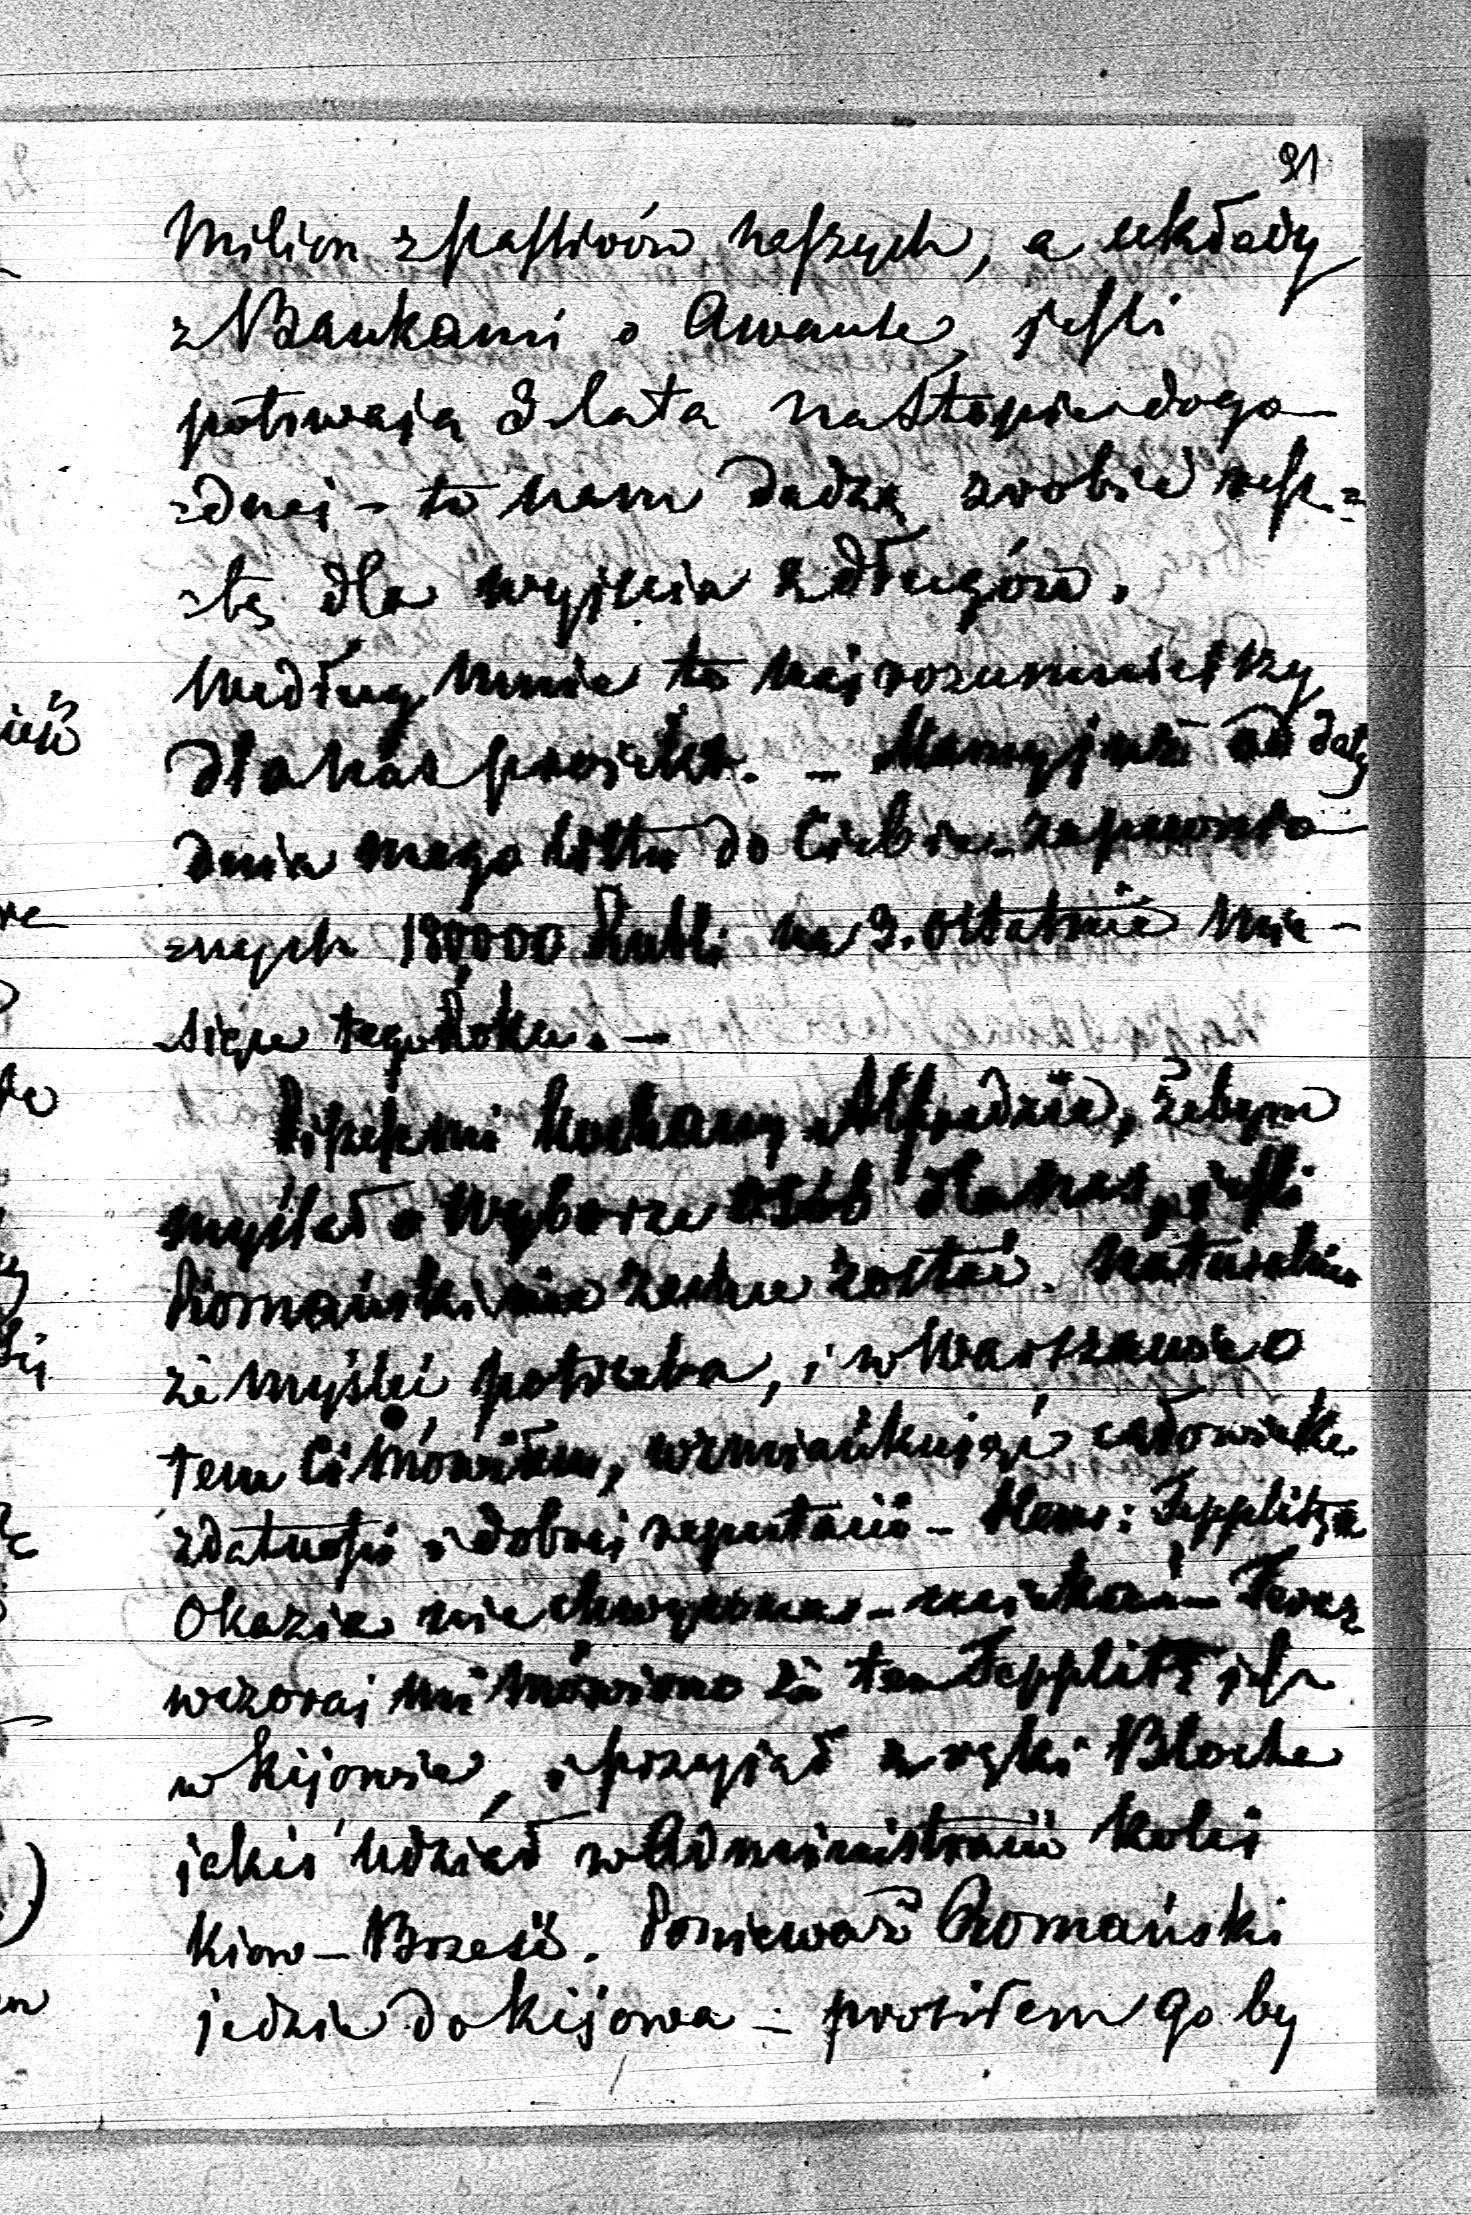 91
Milion z passivów naszych, a układy
z Bankami o Awanse, jeśli
potrwają 3 lata na stopie dogo-
-dnej - to nam dadzą zrobić resz-
-tę dla wyjścia z długów.
Według mnie to najrozumniejszy
dla nas projekt. - Mamy już od daty
dnia mego listu do Ciebie zapewnio-
-nych 180,000 Rubli na 3. ostatnie mie-
-siące tego Roku. -
Piszesz mi kochany Alfredzie, żebym
myślał o wyborze osób dla nas, jeśli
Romański nie zechce zostać. Naturalnie
że myśleć potrzeba, i w Warszawie o
tem Ci mówiłem, wzmiankując człowieka
zdatności i dobrej reputacii - Henr: Tepplitza
Okazia nie - Teraz
wczoraj mi mówiono że ten Tepplitz jest
w Kijowie, i przyjął z ręki Blocha
jakiś udział w Administracii kolei
Kiow - Brześć. Ponieważ Romański
jedzie do Kijowa - prosiłem go by